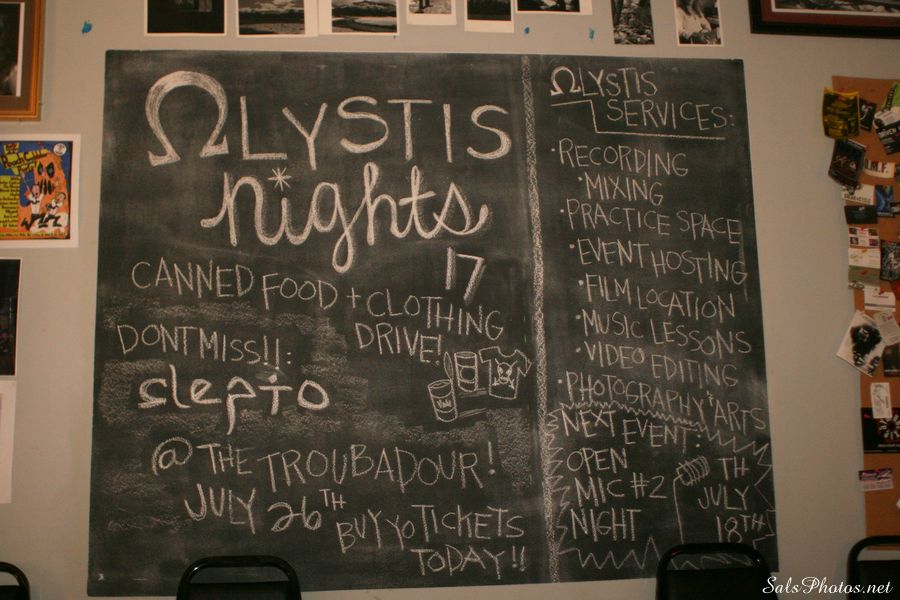 ΩLYSTIS
nights
17
CANNED FOOD + CLOTHING
DRIVE!
DONT MISS!!:
slepto
@ THE TROUBADOUR!
JULY 26TH
BUY YO TICKETS
TODAY!!
ΩLYSTIS
SERVICES:
·RECORDING
·MIXING
·PRACTICE SPACE
·EVENT HOSTING
·FILM LOCATION
·MUSIC LESSONS
·VIDEO EDITING
·PHOTOGRAPHY + ARTS
NEXT EVENT:
OPEN
MIC #2
NIGHT
TH
JULY
18TH
SalsPhotos.net